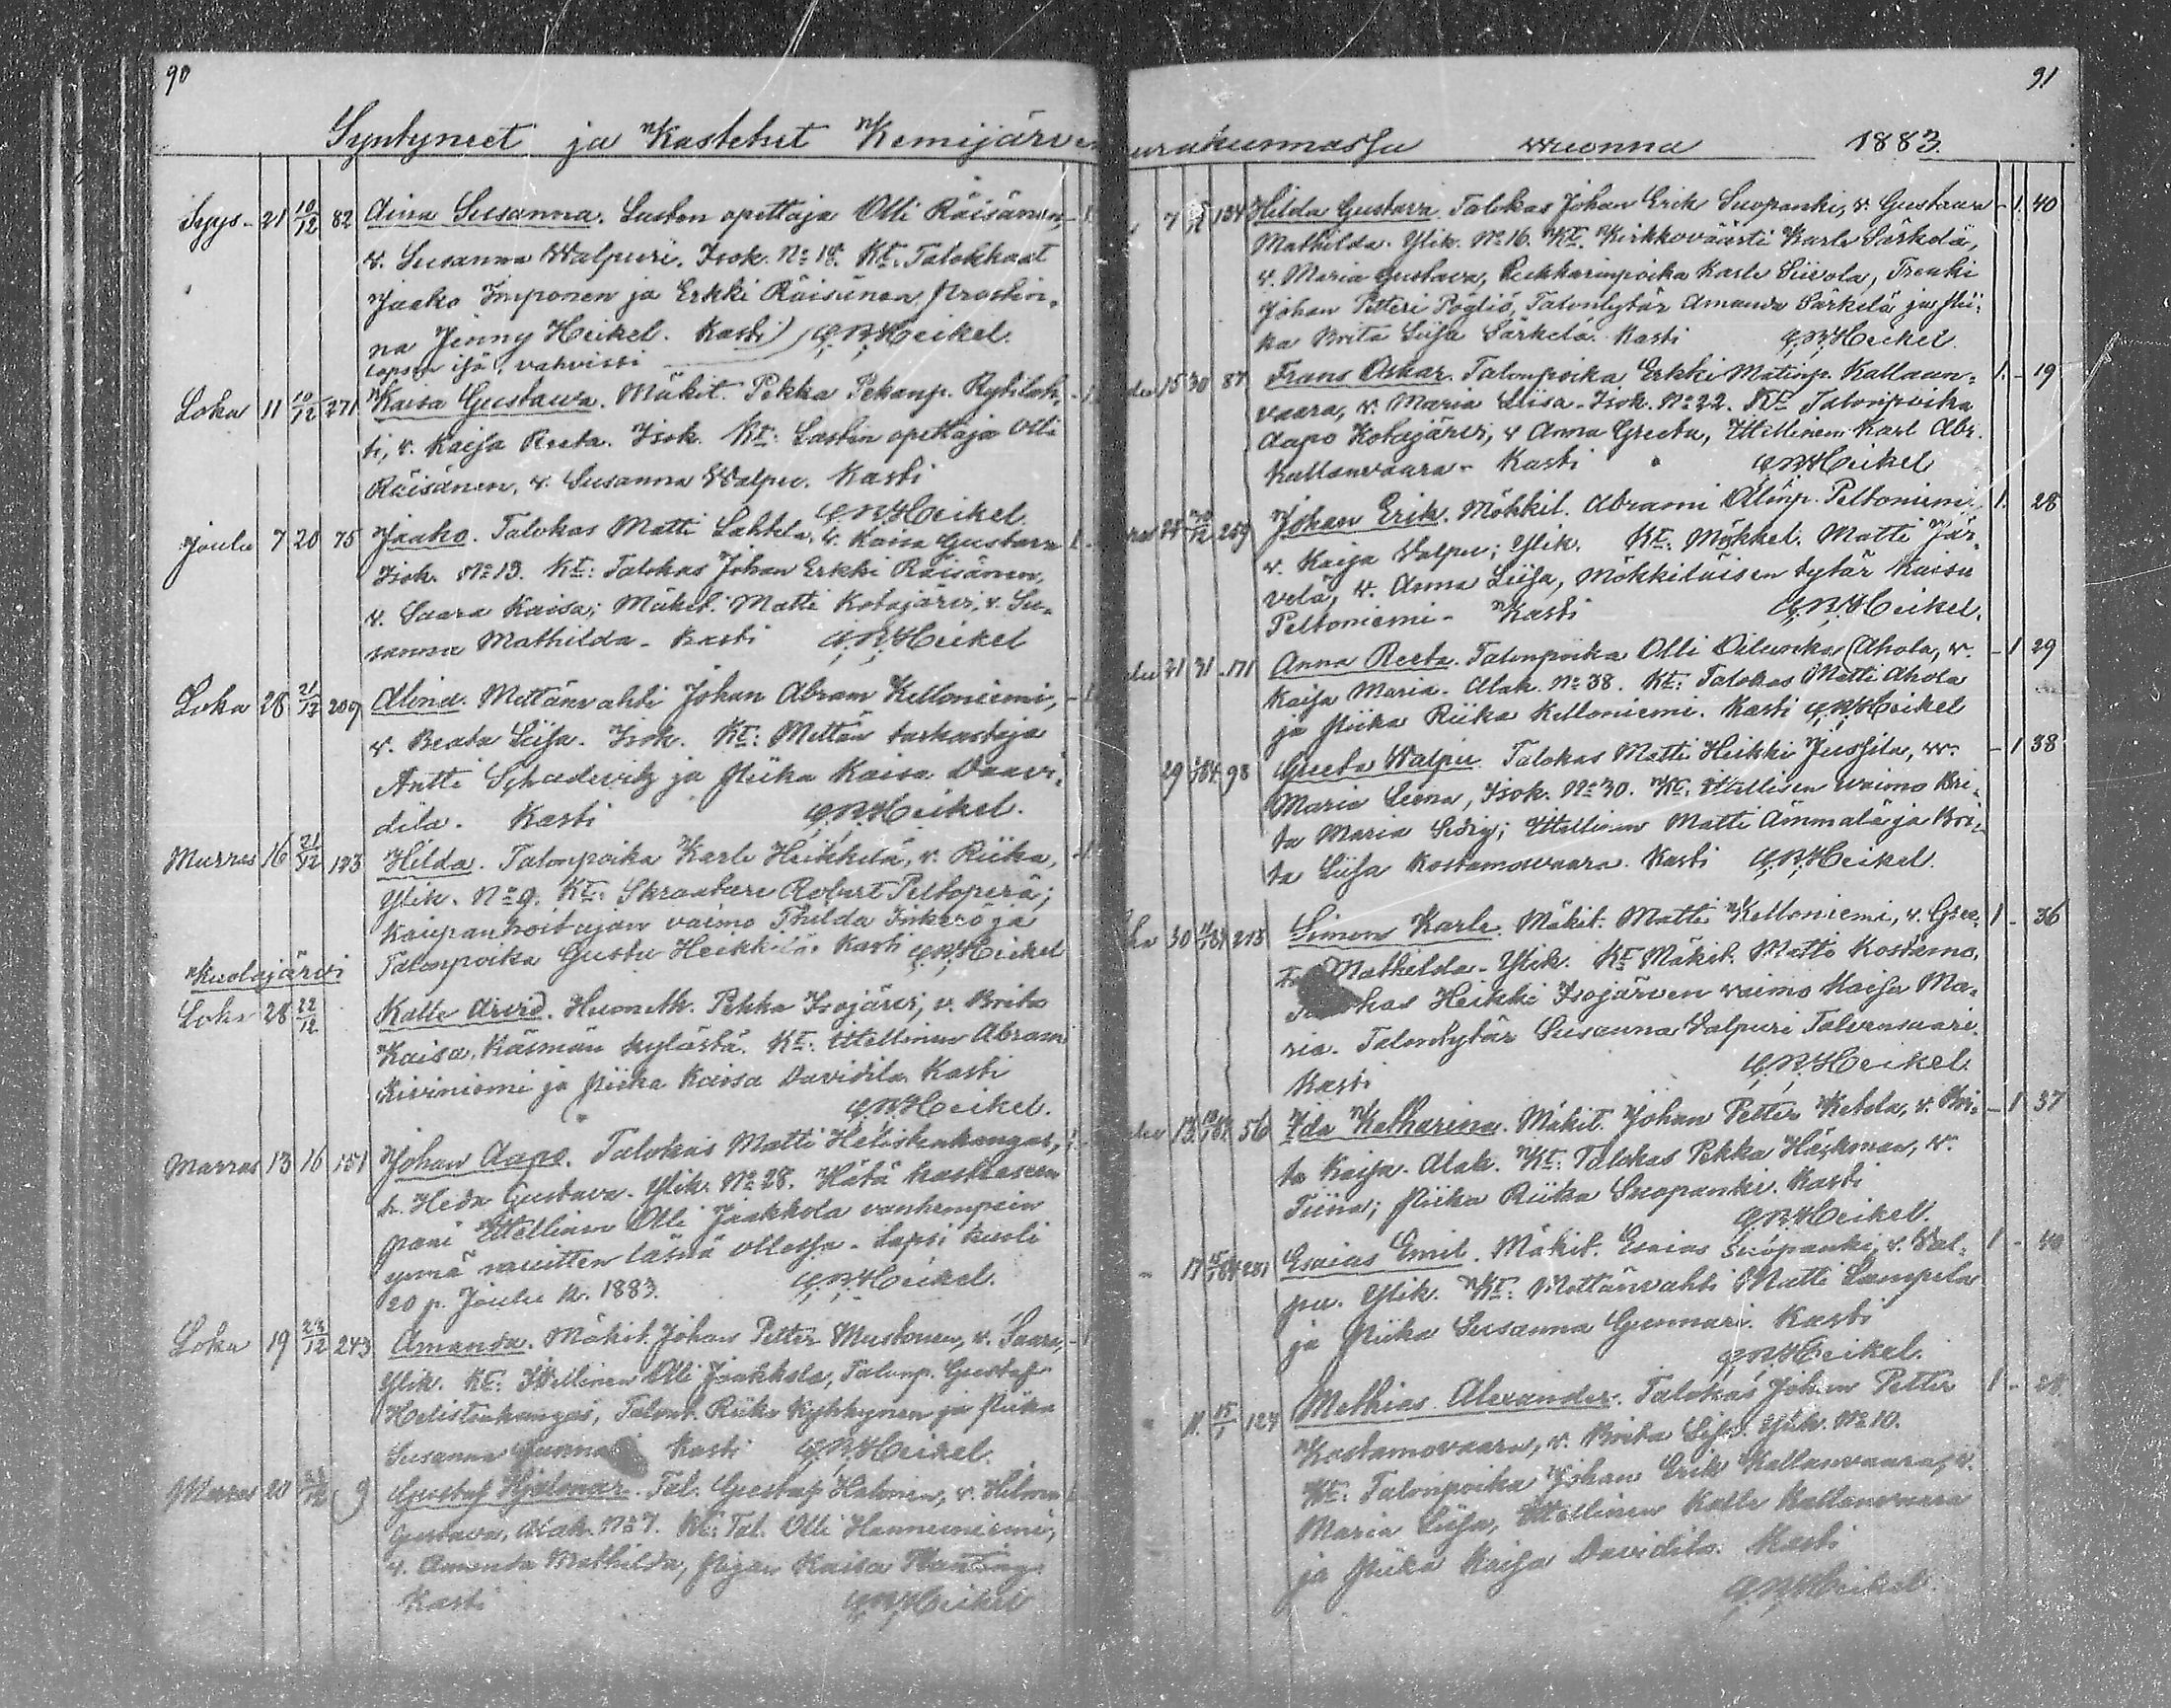 90
Syntyneet ja Kastetut Kemijärven
Syys- 21 10/12 82 Aina Susanna. Lasten opettaja Olli Räisänen, - 1.
v. Susanna Walpuri. Isok. No 18. Kt. Talokkaat
Jaako Imponen ja Erkki Räisänen,
na Jenny Heikel. Kasti Heikel.
lapsen isä, vahvisti
Loka 11 10/12 271 Kaisa Gustawa. Mäkit. Pekka Pekanp. - 1.
ti, v. Kaisa Reeta. Isok. Kt: Lasten opettaja Olli
Räisänen, v. Susanna Walpu. Kasti
Heikel.
Joulu 7 20 75 Jaako. Talokas Matti Lahtela, v. Kaisa Gustava 1.
Isok. No 13. Kt: Talokas Johan Erkki Räisänen,
v. Saara Kaisa; Mäkit. Matti Kotajärvi, v. Su-
sanna Mathilda - Kasti Heikel
Loka 28 21/12 209 Alina. Mettänvahti Johan Abram Kelloniemi, - 1.
v. Beata Liisa. Isok. Kt: Mettän tarkastaja
Antti ja Piika Kaisa Daavi-
dila. Kasti Heikel.
Marras 16 21/12 123 Hilda. Talonpoika Karle Heikkilä, v. Riika, - 1.
Ylik. No 9. Kt: Skraatari Robert Peltoperä;
Kaupanhoitajan vaimo Thilda ja
Talonpoika Gustu Heikkilä. Kasti Heikel
Kuolajärvi
Loka 28 22/12 Kalle Arvid. Huonem. Pekka Isojärvi, v. Brita
Kaisa, Käsmän kylästä. Kt: Itellinen Abram
Kiviniemi ja Piika Kaisa Davidila. Kasti
Heikel.
Marras 13 16 151 Johan Aapo. Talokas Matti Helistenkangas, 1.
v. Heda Gustava. Ylik. No 28. Hätä kasteeseen
pani Itellinen Olli Jaakkola vanhempein
ynnä muitten läsnä ollessa - Lapsi kuoli
20 p. Joulu k. 1883. Heikel.
Loka 19 23/12 243 Amanda. Mäkit. Johan Petter Mustonen, v. Saara, - 1.
Ylik. Kt: Itellinen Olli Jaakkola, Talonp. Gustaf
Helistenkangas, Talont. Riika Kykkynen ja Piika
Susanna Kasti Heikel.
Marras 20 9 Gustaf Hjalmar. Tal. Gustaf Halonen, v. Hilma
Gustava, Alak. No 7. Kt: Tal. Olli Hannuniemi,
v. Amanda Mathilda, Kaisa
Kasti Heikel
91
urakunnassa wuonna 1883.
7 124 Hilda Gustava. Talokas Johan Erik Suopanki, v. Gustava - 1. 40
Mathilda. Ylik. No 16. Kt. Kirkkoväärti Karle Särkelä,
v. Maria Gustava, Karle Siivola, Trenki
Johan Petteri Pöyliö, Talontytär Amanda Särkelä ja Pii-
ka Brita Liisa Särkelä. Kasti Heikel.
15 30 87 Frans Oskar. Talonpoika Erkki Matinp. Kallaan- 1. - 19
vaara, v. Maria Liisa - Isok. No 22. Kt: Talonpoika
Aapo Kotajärvi, v. Anna Greeta, Itellinen Karl Abr.
Kallanvaara - Kasti Heikel
259 Johan Erik. Mökkil. Abrami Olinp. Peltoniemi, 1. 28
v. Kaisa Walpu; Ylik. Kt: Mökkel. Matti Jär-
velä, v. Anna Liisa, Mökkiläisen tytär Kaisa
Peltoniemi - Kasti Heikel.
21 31 171 Anna Reeta. Talonpoika Olli Oilunka (Ahola, v. - 1 29
Kaisa Maria. Alak. No 38. Kt: Talokas Matti Ahola
ja Piika Riika Kelloniemi. Kasti Heikel
29 98 Greeta Walpu. Talokas Matti Heikki Jussila, w. - 1 38
Maria Leena, Isok. No 30. Kt. Itellisen waimo Bri-
ta Maria; Itellinen Matti Ämmälä ja Bri-
ta Liisa Kostamovaara. Kasti Heikel.
30 Simon Karle. Mäkit. Matti Kelloniemi, v. Gree- 1 - 36
Mathilda - Ylik. Kt: Mäkit. Matti Kostamo,
Heikki Isojärven vaimo Kaisa Ma-
ria. Talontytär Susanna Walpuri Talvensaari.
Kasti Heikel.
13 56 Ida Katharina. Mäkit. Johan Petter Ketola, v. Bri- - 1 37
ta Kaisa. Alak. Kt: Talokas Pekka, v.
Tiina; Piika Riika Suopanki. Kasti
Heikel.
" 17 Esaias Emil. Mäkit. Esaias Suopanki, v. Wal- 1 - 40
pu. Ylik. Kt: Mettänvahti Matti Lampela
ja Piika Susanna Kasti
Heikel.
" 11. 15/1 127 Mathias Alexander. Talokas Johan Petter 1 -
Kostamovaara, v. Brita Liisa. Ylik. No 10.
Kt: Talonpoika Johan Erik Kallanvaara, v.
Maria Liisa, Itellinen Kalle Kallanvaara
ja Piika Kaisa Davidila. Kasti
Heikel.